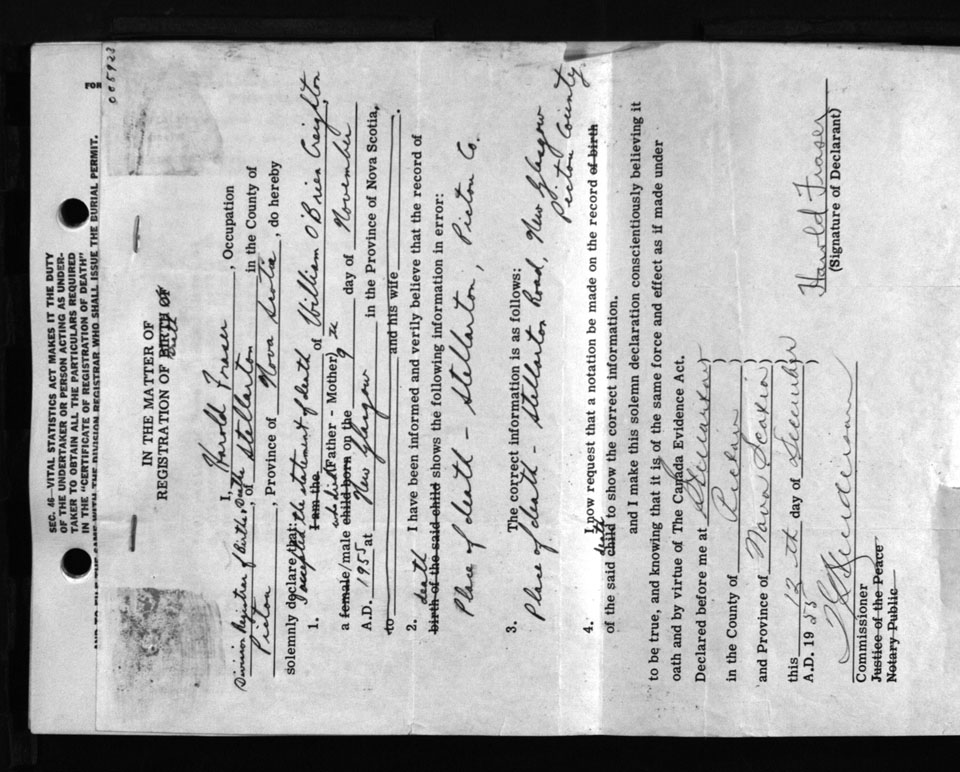 SEC. 46—VITAL STATISTICS ACT MAKES IT THE DUTY
OF THE UNDERTAKER OR PERSON ACTING AS UNDER-
TAKER TO OBTAIN ALL THE PARTICULARS REQUIRED
IN THE "CERTIFICATE OF REGISTRATION OF DEATH"
AND TO FILE THE SAME WITH THE DIVISION REGISTRAR WHO SHALL ISSUE THE BURIAL PERMIT.
FOR
005923
IN THE MATTER OF
REGISTRATION OF BIRTH OF
Death
I, Harold Fraser, Occupation
Division Registrar of Births, Deaths, of Stellarton in the County of
Pictou, Province of Nova Scotia, do hereby
solemnly declare that:
1. I accepted the statement of death of William O'Brien Creighton,
I am the
who died (Father – Mother)
a female/male child born on the 9th day of November
A.D. 1955 at New Glasgow in the Province of Nova Scotia,
to and his wife .
2. I have been informed and verily believe that the record of
death
birth of the said child shows the following information in error:
Place of death - Stellarton, Pictou Co.
3. The correct information is as follows:
Place of death - Stellarton Road, New Glasgow
Pictou County
4. I now request that a notation be made on the record of birth
death
of the said child to show the correct information.
and I make this solemn declaration conscientiously believing it
to be true, and knowing that it is of the same force and effect as if made under
oath and by virtue of The Canada Evidence Act.
Declared before me at )
in the County of )
and Province of Nova Scotia )
this 12th day of December )
A.D. 1955 )
Harold Fraser
(Signature of Declarant)
Commissioner
Justice of the Peace
Notary Public